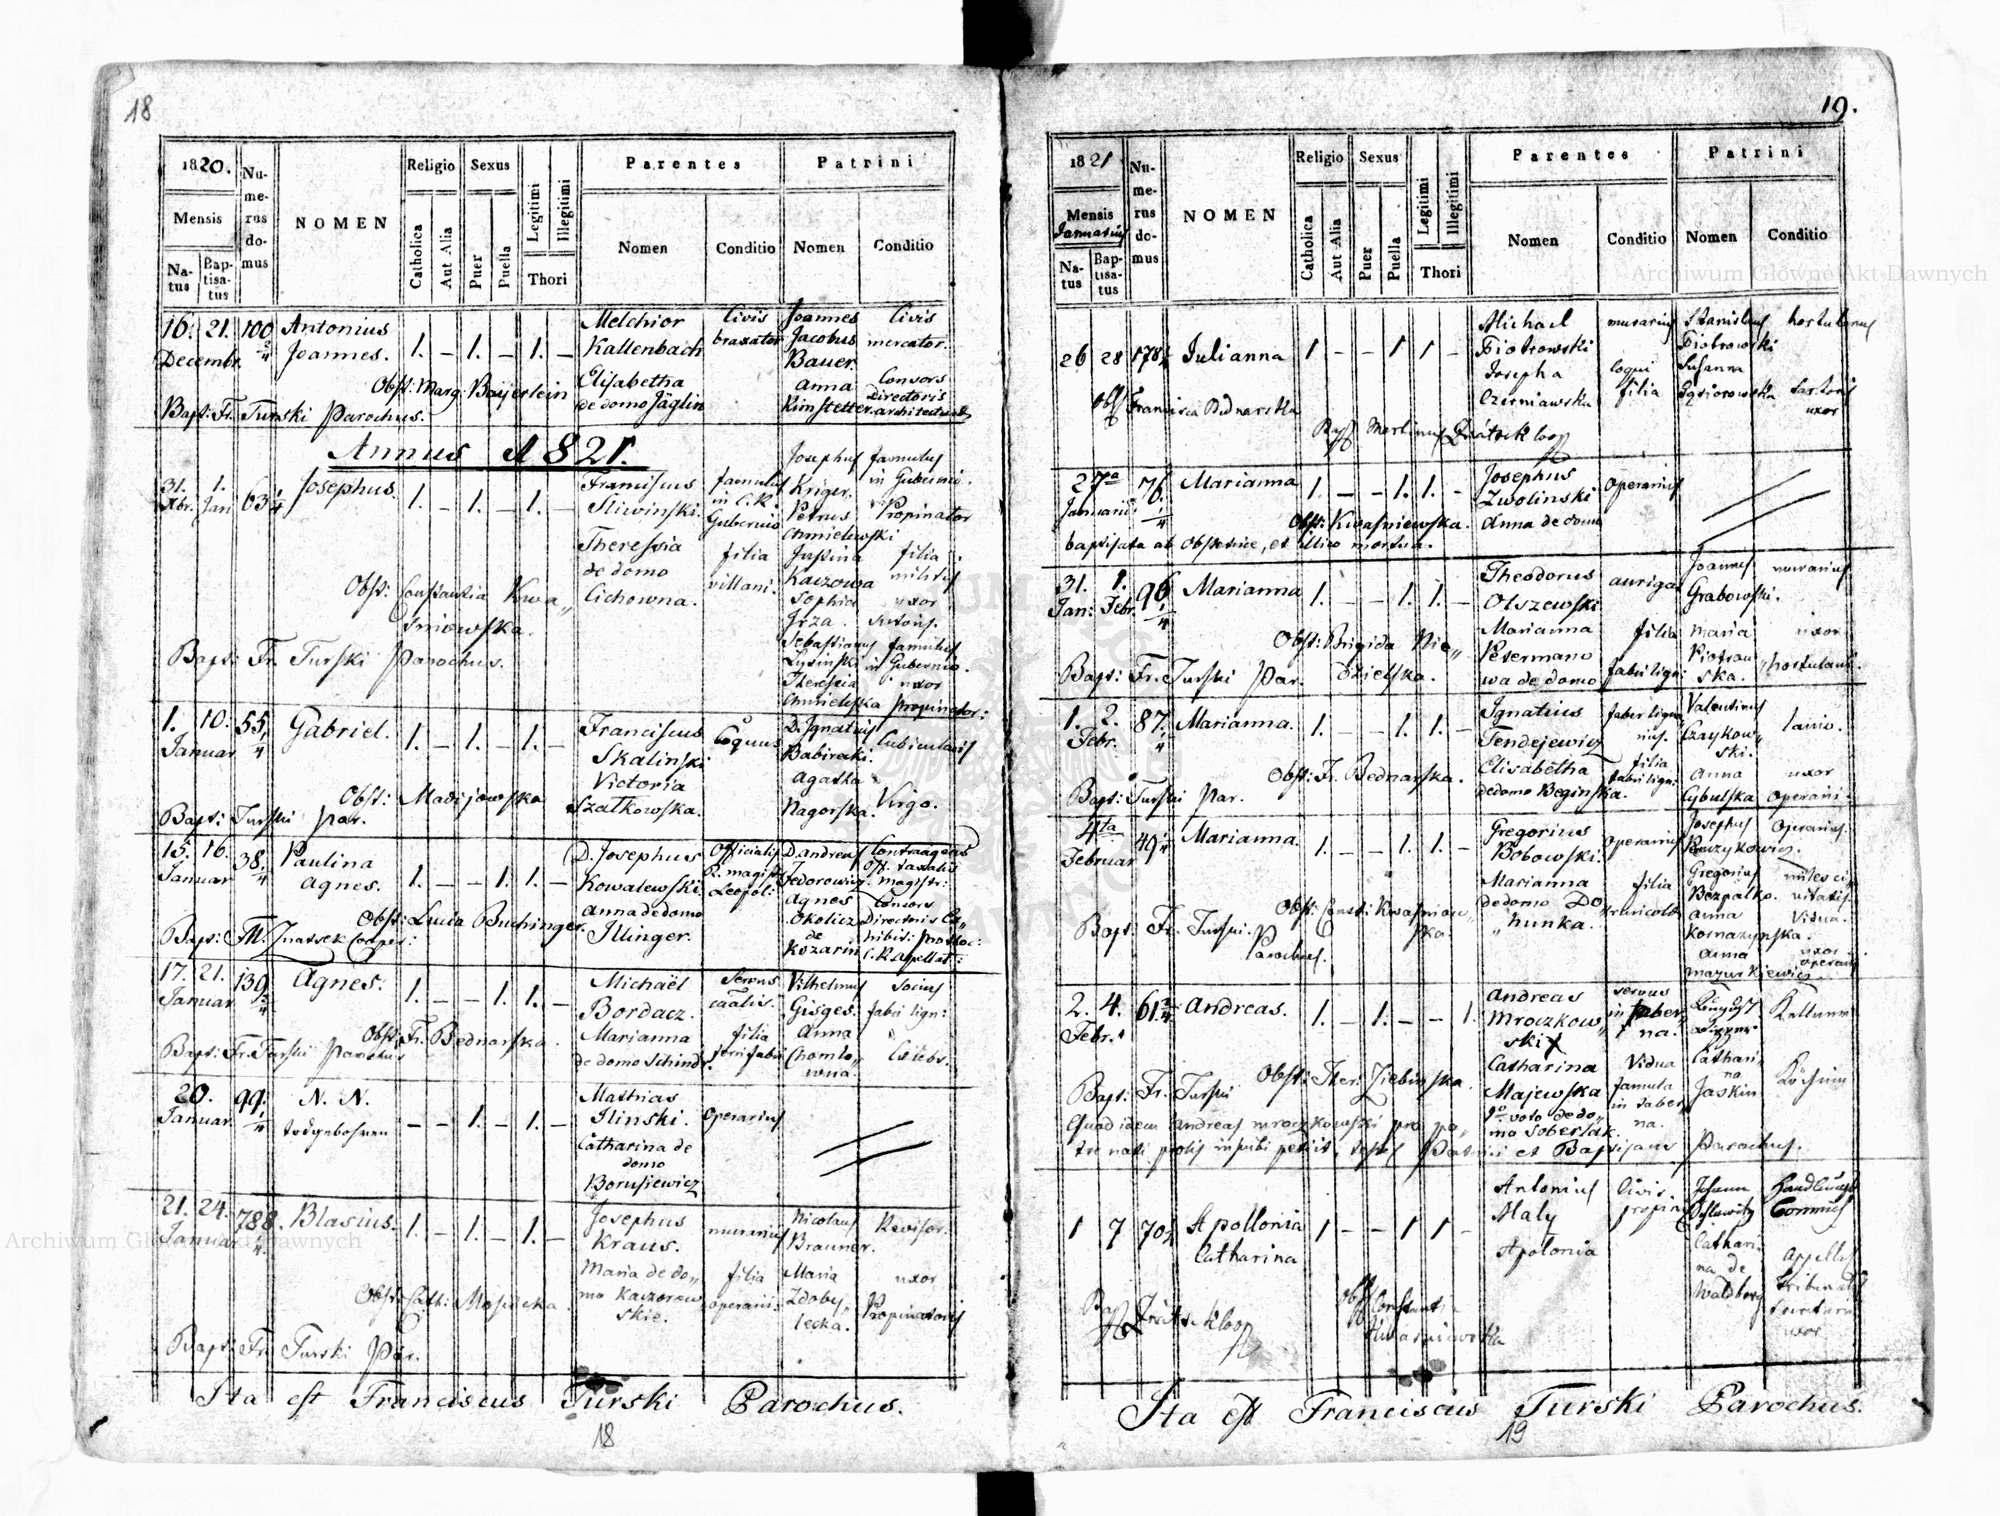 18
1820.
Mensis
Na-
tus
Bap-
tisa-
tus
Nu-
me-
rus
do-
mus
NOMEN
Religio
Catholica
Aut Alia
Sexus
Puer
Puella
Legitimi
Illegitimi
Thori
Parentes
Nomen
Conditio
Patrini
Nomen
Conditio
16. 21. 100 Antonius 1. – 1. – 1. – Melchior Civis Joannes Civis
Decembr. 2/4 Joannes. Kallenbach braxator Jacobus mercator.
Bauer
Obst: Marg: Bayerlein Elisabetha Anna Consors
de domo Jäglin Kimstetter Directoris
Bapt: Fr. Turski Parochus. architecturae
Annus 1821.
31. 1. 63 1/4 Josephus. 1. – 1. – 1. – Franciscus famulus Josephus famulus
Xbr. Jan Sliwinski. in C.R. Kriger. in Gubernio.
Gubernio Petrus Propinator
Chmielewski
Theressia filia Justina filia
de domo villani. Kaczowa militis
Cichowna. Sophia uxor
Obst: Constantia Kwa„
sniewska. Sebastianus famulus
Bapt: Fr. Turski Parochus. Lysinski in Gubernio.
Theressia uxor
Chmielska propinator:
1. 10. 55. Gabriel. 1. – 1. – 1. – Franciscus Coquus D. Ignatius Cubicularis
Januar 1/4 Skalinski Babirecki.
Victoria Agatha
Obst: Madijowska Szatkowska. Nagorska. Virgo.
Bapt: Turski par.
15. 16. 38. Paulina 1. – – 1. 1. – D. Josephus Officialis D. Andreas Contraagens
Januar 1/4 Agnes. Kowalewski. R. magist: Fedorowicz Off. taxalis
Leopol: magistr:
Anna de domo Agnes Consors
Obst: Lucia Buchinger. Illinger. Okolicz Directoris Ex„
Bapt: M. Znatsek Cooper: de hibit: protoc:
Kozarin C.R. Appellat:
17. 21. 139 Agnes. 1. – – 1. 1. – Michaël Servus Vilhelmus Socius
Januar 2/4 Bordacz. caalis. Gisges. fabri lign:
Marianna filia Anna
Obst: Fr. Bednarska. de domo Schindr. Chomto„ Celebs.
Bapt: Fr. Turski Parochus wna.
20. 99. N. N. – – 1. – 1. – Mathias Operarius
Januar 1/4 todgebohren Ilinski.
Catharina de
domo
Borusiewicz
21. 24. 788. Blasius. 1. – 1. – 1. – Josephus murarius Nicolaus Revisor.
Januar 1/4 Kraus. Brauner.
Maria de do„ filia Maria uxor
Obst: Cath: Mosicka. mo Kaczorow operarii. Zdoby„ Propinatoris
skie. lecka.
Bapt: Fr. Turski Par.
Ita est Franciscus Turski Parochus.
18
19.
1821
Mensis
Januarius
Na-
tus
Bap-
tisa-
tus
Nu-
me-
rus
do-
mus
NOMEN
Religio
Catholica
Aut Alia
Sexus
Puer
Puella
Legitimi
Illegitimi
Thori
Parentes
Nomen
Conditio
Patrini
Nomen
Conditio
26 28 178 Julianna 1 – – 1 1 – Michael murarius Stanislaus hortulanus
Piotrowski Piotrowski
Josepha coqui Susanna
Czerniawska filia Gąsiorowska Sartoris
Obst Francisca Bednarska uxor
Bapt Martinus
27ª 76 Marianna 1. – – 1. 1. – Josephus Operarius
Januarii 1/4 Zwolinski
Obst: Kwasniewska. Anna de domo
baptisata ab Obstetrice, et illico mortua.
31. 1. 96 Marianna 1. – – 1. 1. – Theodorus auriga Joannes murarius
Jan: Febr. 1/4 Olszewski Grabowski.
Marianna filia Maria uxor
Obst: Brigida Nie„ Petermano fabri lign: Piotrow„ hortulani.
Bapt: Fr. Turski Par. dzielska. wa de domo ska.
1. 2. 87. Marianna. 1. – – 1. 1. – Ignatius faber ligna„ Valentinus lanio.
Febr. 1/4 Tendejewicz rius. Czaykow„
ski.
Obst: Fr. Bednarska. Elisabetha filia Anna uxor
Bapt: Turski Par. de domo Beginska. fabri lign: Cybulska operarii.
4ta 49 1/4 Marianna. 1. – – 1. 1. – Gregorius operarius Josephus Operarius.
Februar Bobowski.
Marianna filia Gregorius miles ci„
de domo Do„ Bezpalko. vitatis
Obst: Const: Kwasniew„ hunka. Anna Vidua.
Bapt: Fr. Turski. ska
Parochus. Anna uxor
Mazurkiewicz operarii
2. 4. 61 2/4 Andreas. 1. – 1. – – 1. Andreas servus
Febr. Mroczkow„ in taber„
ski na.
Catharina Vidua Cathari„
Obst: Ther: Ziebinska. Majewska famula na
Bapt: Fr. Turski 1º voto de do„ in taber„ Jaskin Köchin
mo Soberlak. na.
Quod idem Andreas Mroczkowski pro pa„
tre nati prolis inscribi petiit, testes Patrini et Baptisans Parochus.
1 7 70 Apollonia 1 – – 1 1 – Antonius Civis Johann Handlungs
Catharina Maly propin Commis
Apolonia Cathari„ Appellat
na de Tribunal
Waldberg uxor
Obst Constant:
Kwasniewska
Ita est Franciscus Turski Parochus.
19
Archiwum Główne Akt Dawnych
Archiwum Główne Akt Dawnych